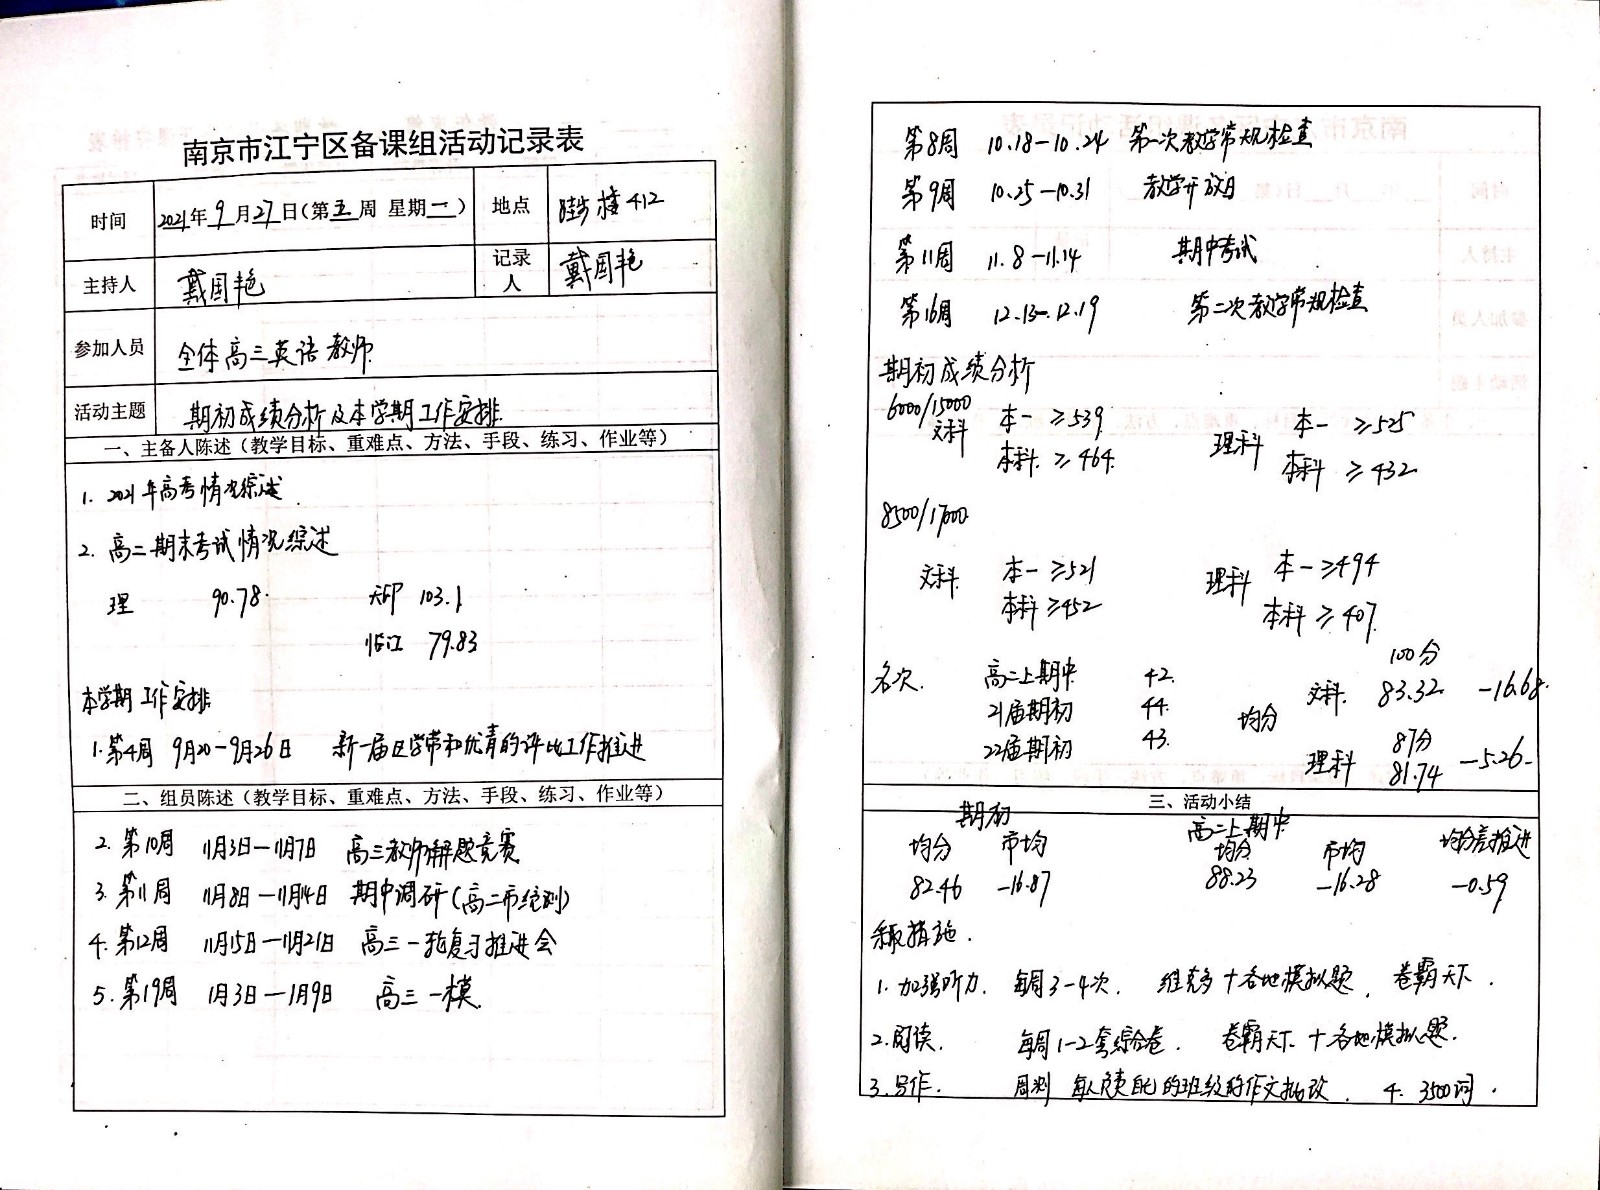 南京市江宁区备课组活动记录表
时间 2021年9月27日(第五周 星期一) 地点 跬步楼412
主持人 戴国艳 记录人 戴国艳
参加人员 全体高三英语教师
活动主题 期初成绩分析及本学期工作安排
一、主备人陈述（教学目标、重难点、方法、手段、练习、作业等）
1. 2021年高考情况综述
2. 高二期末考试情况综述
理 90.78. 天印 103.1
临江 79.83
本学期工作安排
1.第4周 9月20-9月26日 新一届区学带和优青的评比工作推进
二、组员陈述（教学目标、重难点、方法、手段、练习、作业等）
2. 第10周 11月3日—11月7日 高三教师解题竞赛
3. 第11周 11月8日—11月4日 期中调研(高二市统测)
4. 第12周 11月15日—11月21日 高三一轮复习推进会
5. 第19周 1月3日—1月9日 高三一模.
第8周 10.18—10.24 第一次教学常规检查
第9周 10.25—10.31 教学开放日
第11周 11.8—11.14 期中考试
第16周 12.13—12.19 第二次教学常规检查
期初成绩分析
6000/15000
文科 本一 ≥539 理科 本一 ≥525
本科. ≥464. 本科 ≥432
8500/17000
文科. 本一 ≥521 理科 本一 ≥494
本科 ≥452 本科 ≥407.
100分
名次. 高二上期中 42. 文科. 83.32 -16.68.
21届期初 44. 均分
22届期初 43. 87分
理科 81.74 -5.26-
三、活动小结
期初 高二上期中
均分 市均 均分 市均 均分差推进
82.46 -16.87 88.23 -16.28 -0.59
措施.
1. 加强听力. 每周3-4次. 维克多+各地模拟题. 卷霸天下.
2.阅读. 每周1-2套综合卷. 卷霸天下+各地模拟题.
3.写作. 周测 每人负责自己的班级的作文批改. 4. 3500词.